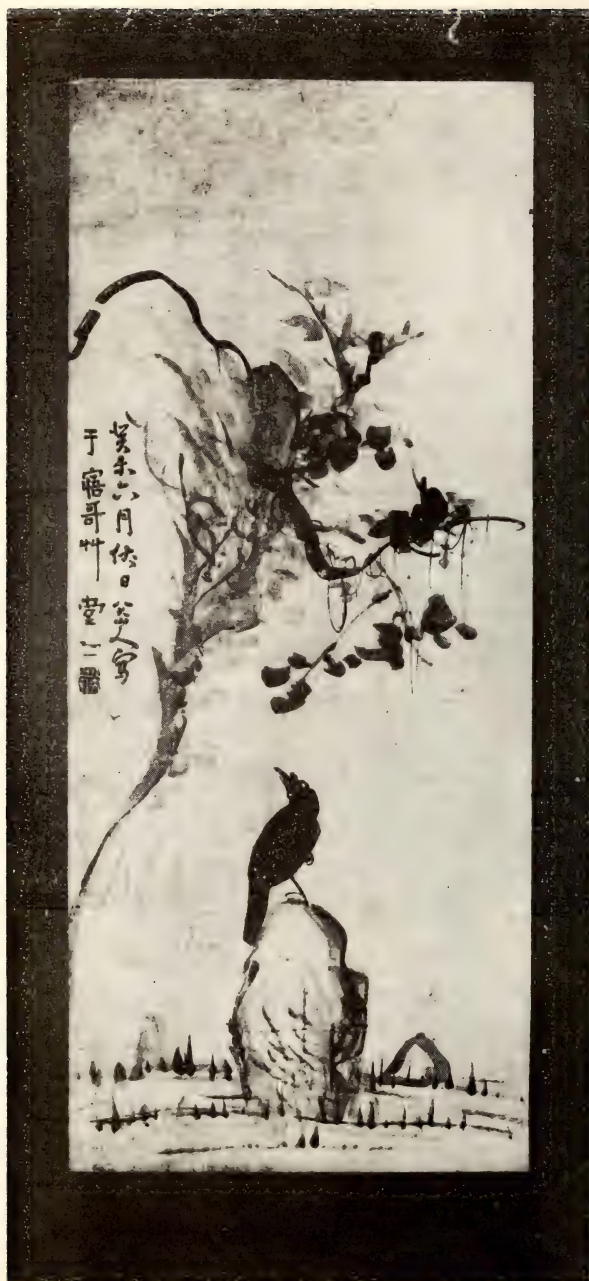 癸未六月伏日八大山人寫
于寤哥艸堂